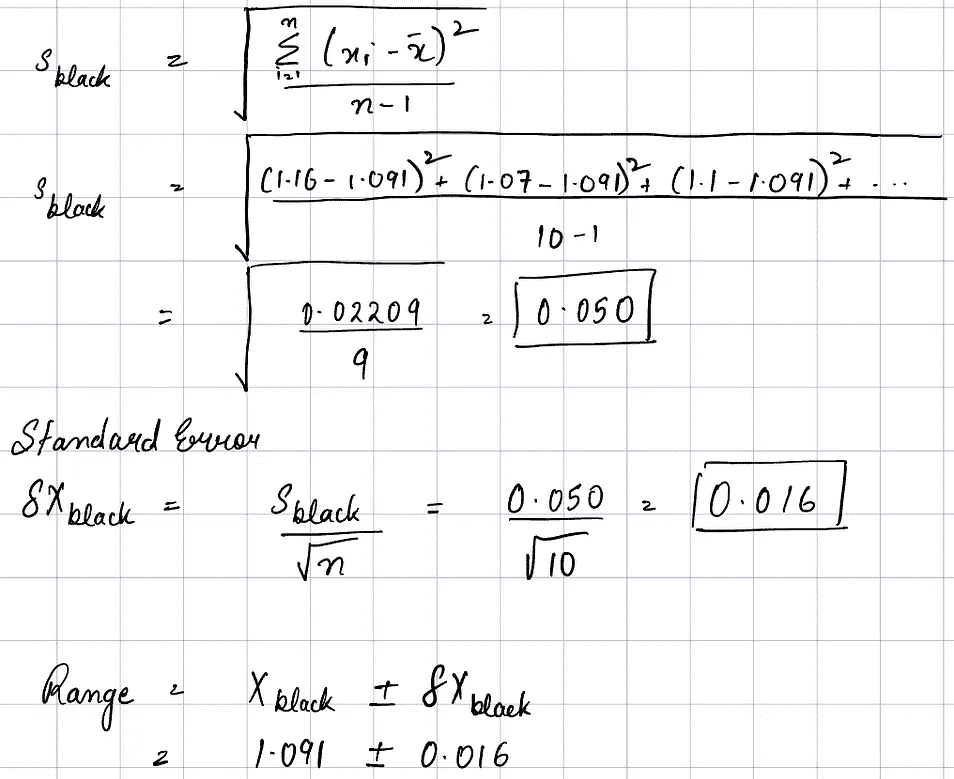 s black = √( Σ i=1 n (xi - x̄)² / n-1 )
s black = √( (1.16 - 1.091)² + (1.07 - 1.091)² + (1.1 - 1.091)² + ... / 10-1 )
= √( 0.02209 / 9 ) = 0.050
Standard Error
δX black = S black / √n = 0.050 / √10 = 0.016
Range = X black ± δX black
= 1.091 ± 0.016